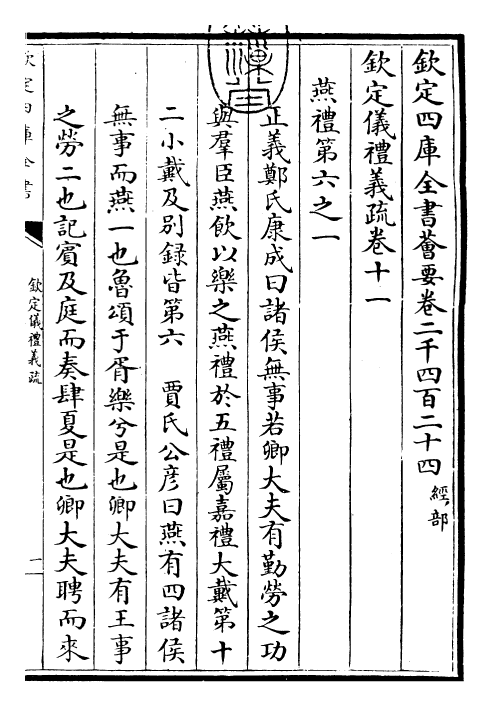 欽定四庫全書薈要卷二千四百二十四 經部
欽定儀禮義疏卷十一
燕禮第六之一
正義鄭氏康成曰諸侯無事若卿大夫有勤勞之功
與羣臣燕飲以樂之燕禮於五禮屬嘉禮大戴第十
二小戴及別録皆第六 賈氏公彦曰燕有四諸侯
無事而燕一也魯頌于胥樂兮是也卿大夫有王事
之勞二也記賓及庭而奏肆夏是也卿大夫聘而來
欽定四庫全書
欽定儀禮義疏
一